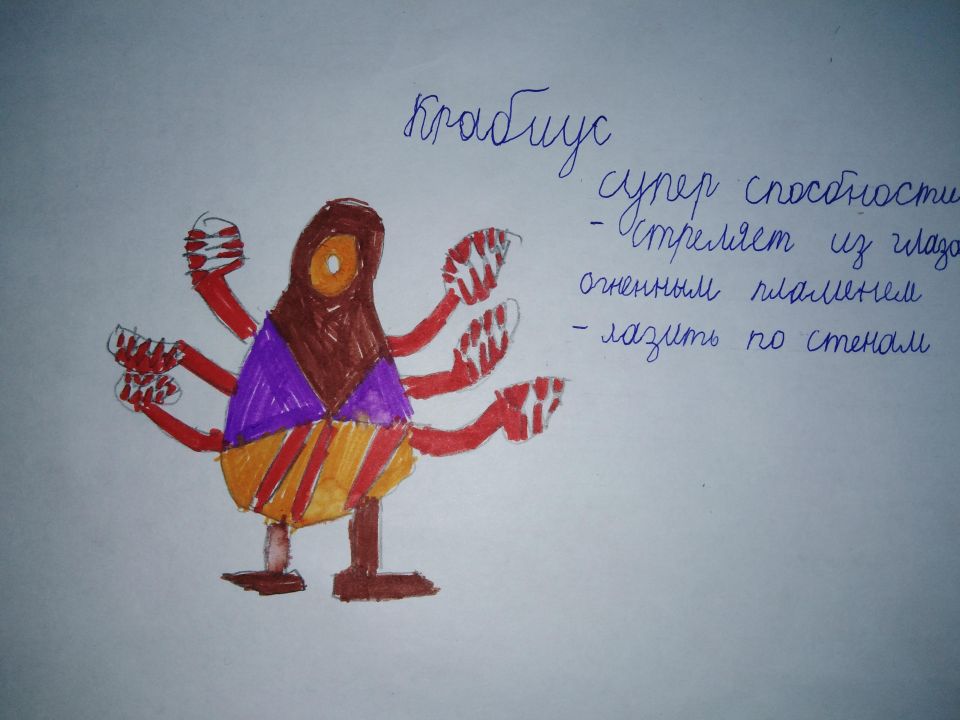 Крабиус
супер способности
- стреляет из глаза
огненным пламенем
- лазить по стенам